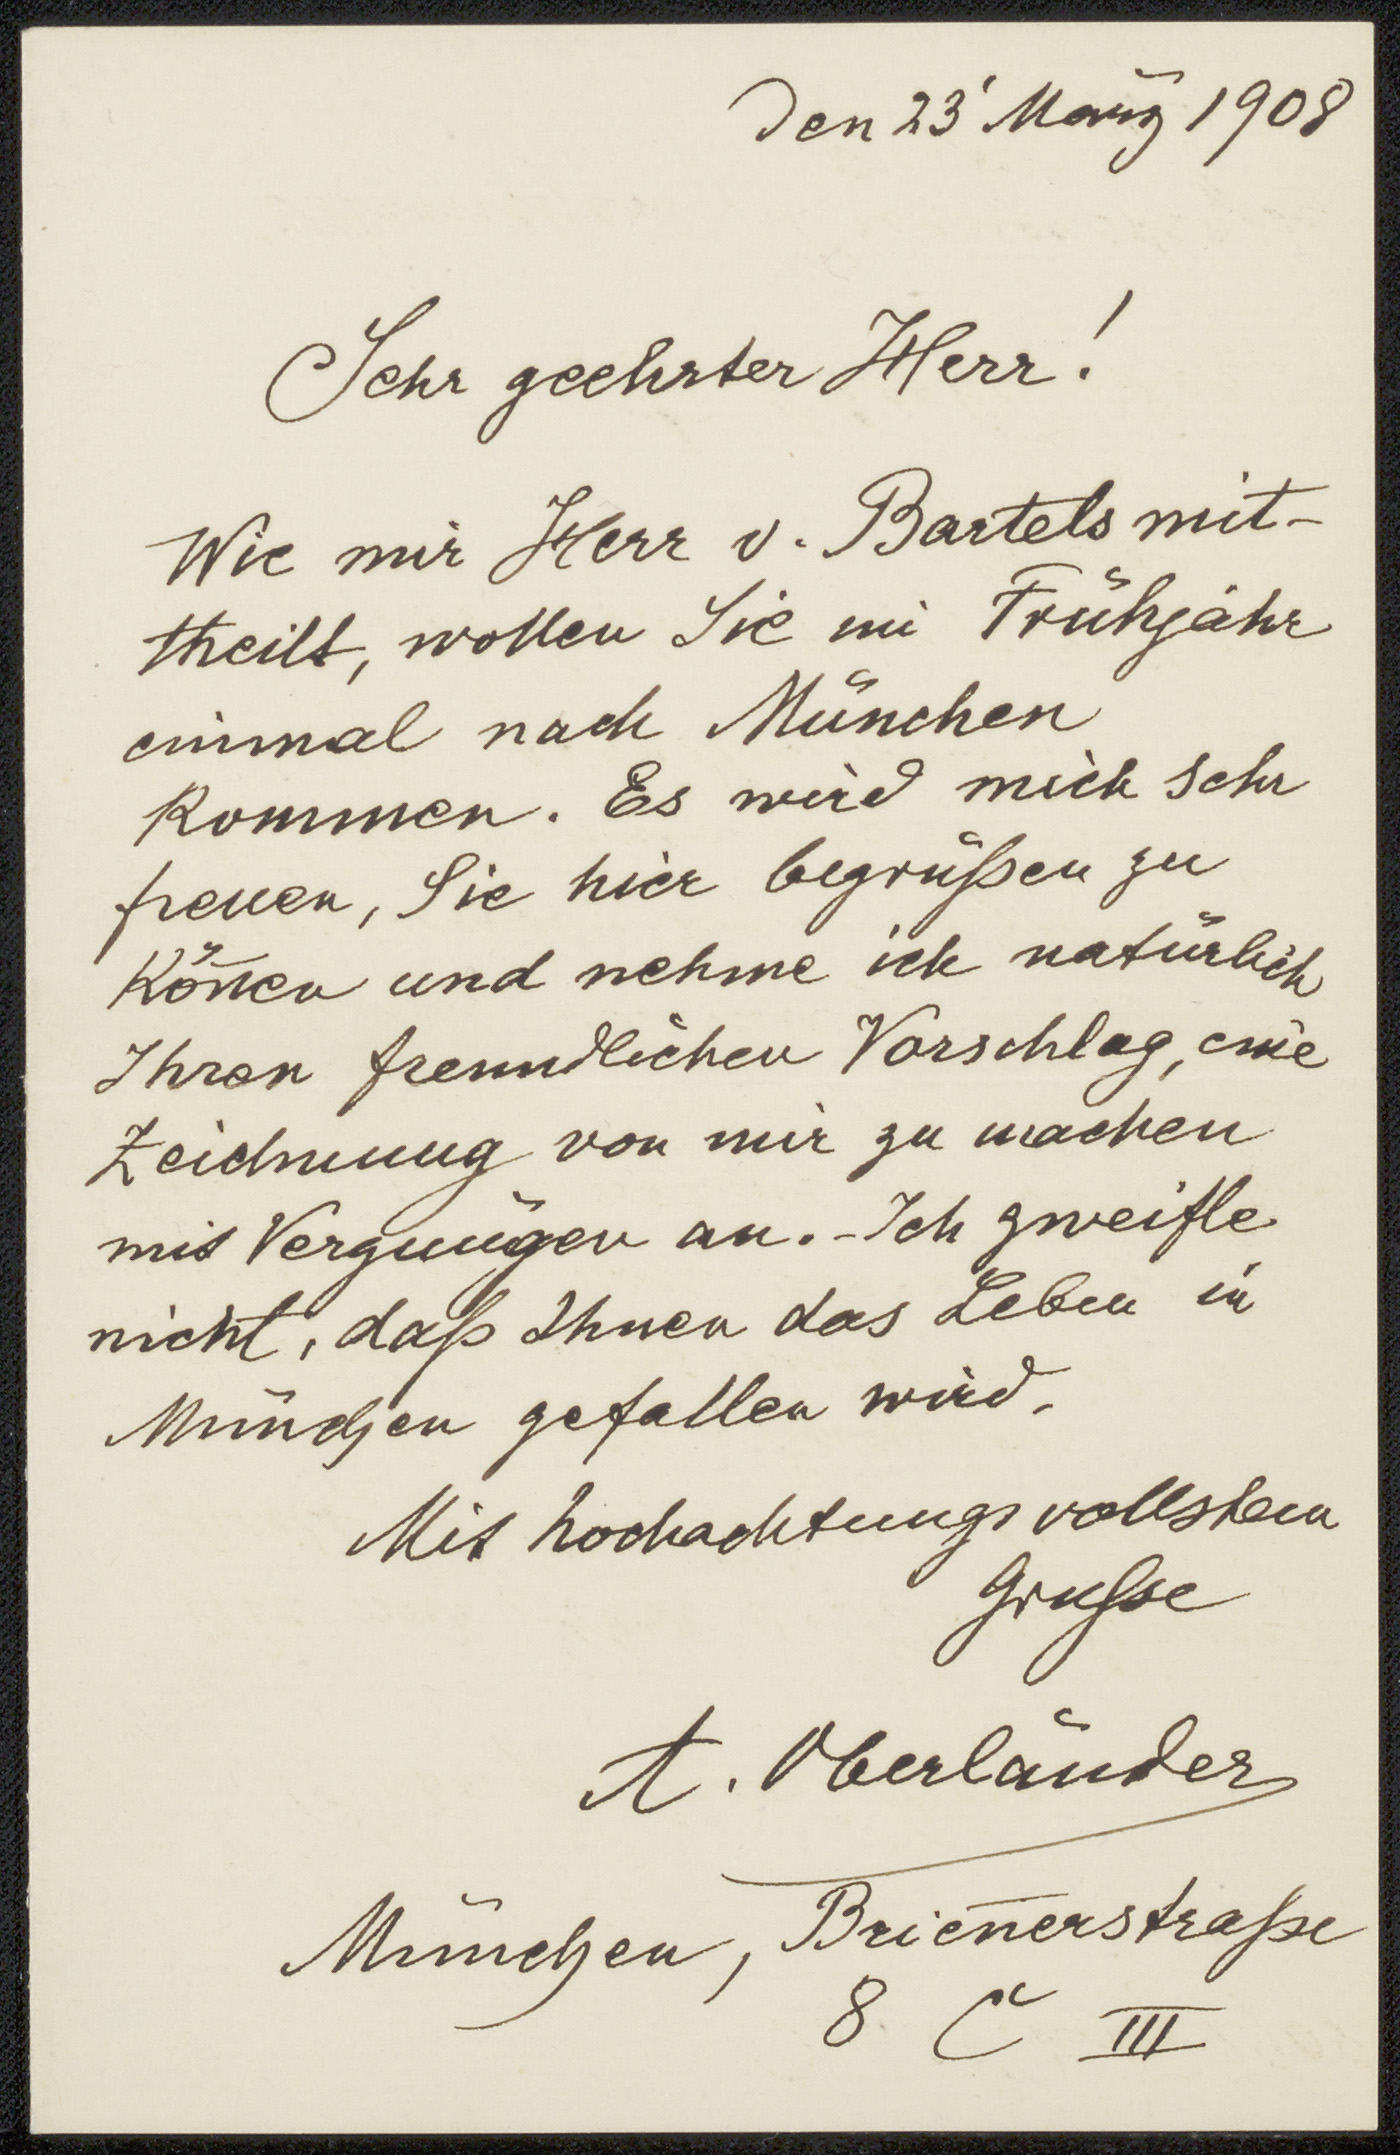 Den 23' März 1908
Sehr geehrter Herr!
Wie mir Herr v. Bartels mit-
theilt, wollen Sie im Frühjahr
einmal nach München
kommen. Es wird mich sehr
freuen, Sie hier begrüßen zu
kön̄en und nehme ich natürlich
Ihren freundlichen Vorschlag, eine
Zeichnung von mir zu machen
mit Vergnügen an. - Ich zweifle
nicht, daß Ihnen das Leben in
München gefallen wird.
Mit hochachtungsvollstem
Gruße
A. Oberländer
München, Brien̄erstraße
8 C III